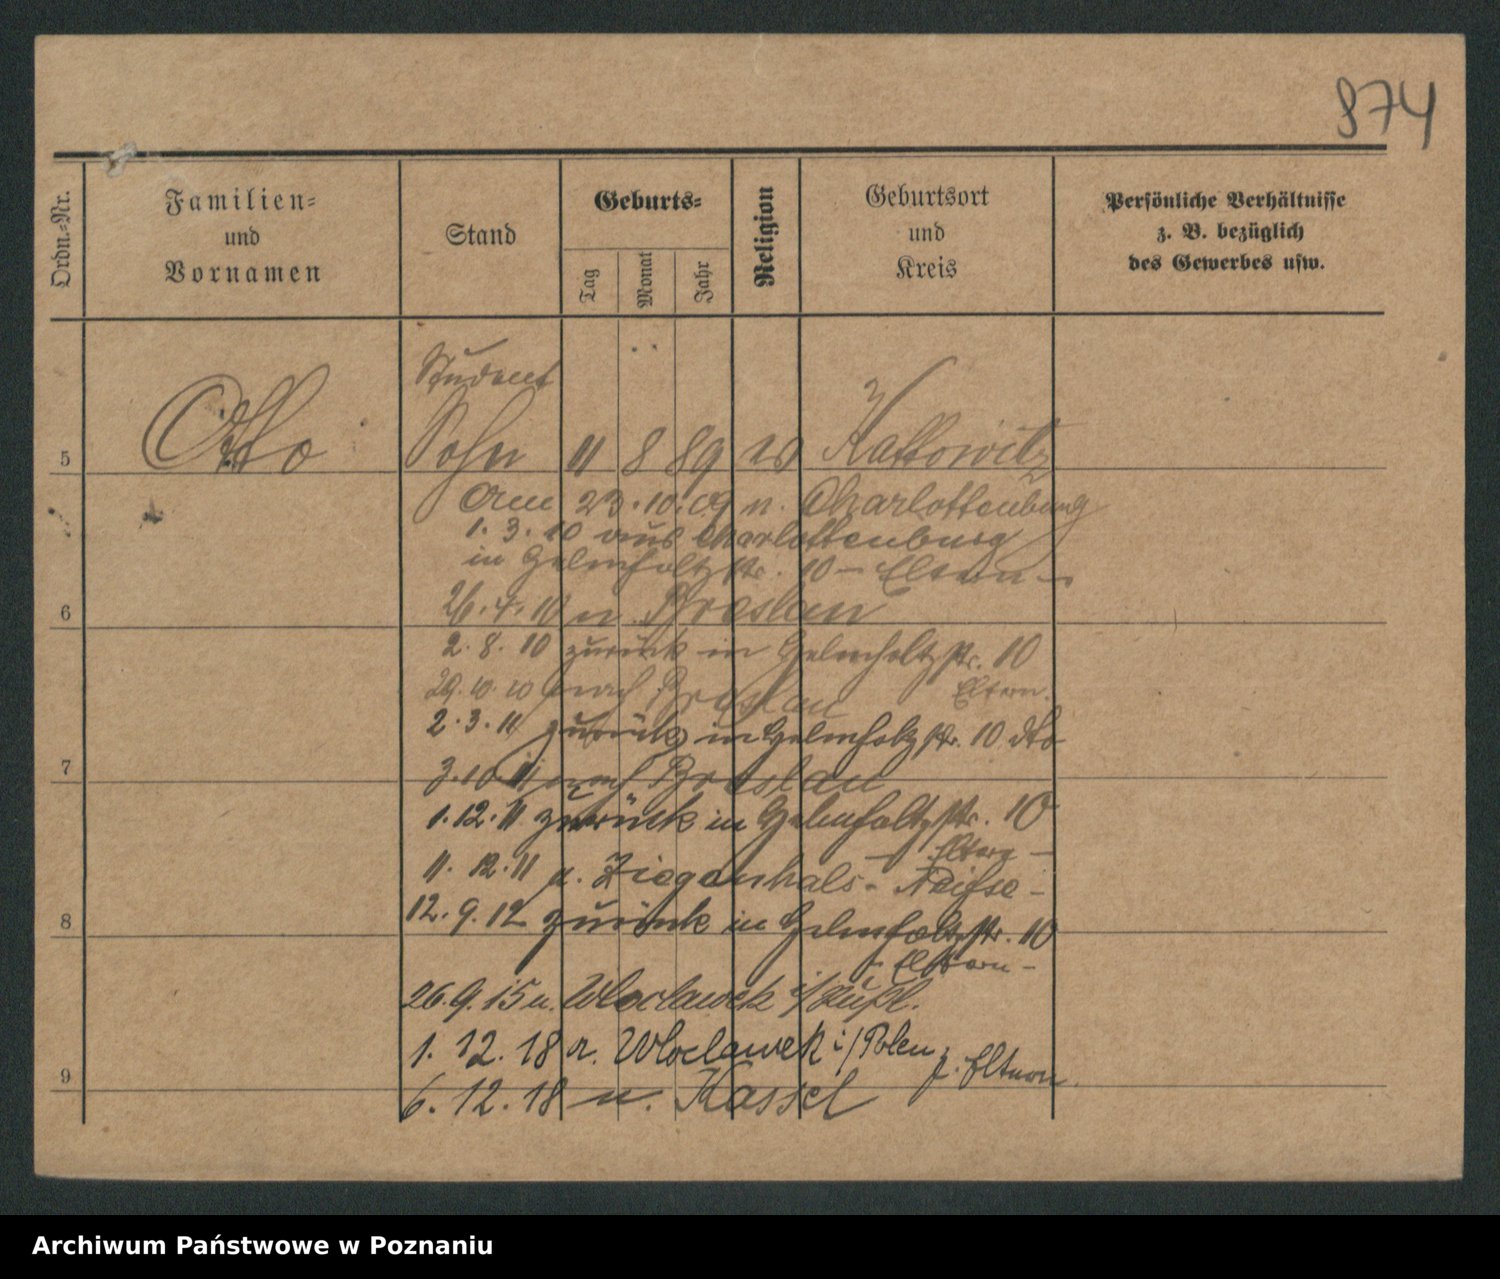 874
Ordn.-Nr.
Familien-
und
Vornamen
Stand
Geburts-
Tag
Monat
Jahr
Religion
Geburtsort
und
Kreis
Persönliche Verhältnisse
z. B. bezüglich
des Gewerbes usw.
Student
5 Otto Sohn 11 8 89 Kattowitz
Am 23.10.09 n. Charlottenburg
1.3.10 aus Charlottenburg
in Helmholtzstr. 10 – Eltern –
6 26.4.10 n. Breslau
2.8.10 zurück in Helmholtzstr. 10
Eltern.
29.10.10 nach Breslau
2.3.11 zurück in Helmholtzstr. 10 dto
7 3.10.11 nach Breslau
1.12.11 zurück in Helmholtzstr. 10
– Eltern –
11.12.11 n. Ziegenhals - Neisse -
8 12.9.12 zurück in Helmholtzstr. 10
- Eltern -
26.9.15 n. Wloclawek i/Rußl.
1.12.18 a. Wloclawek i/Polen, z. Eltern.
9 6.12.18 n. Kassel
Archiwum Państwowe w Poznaniu